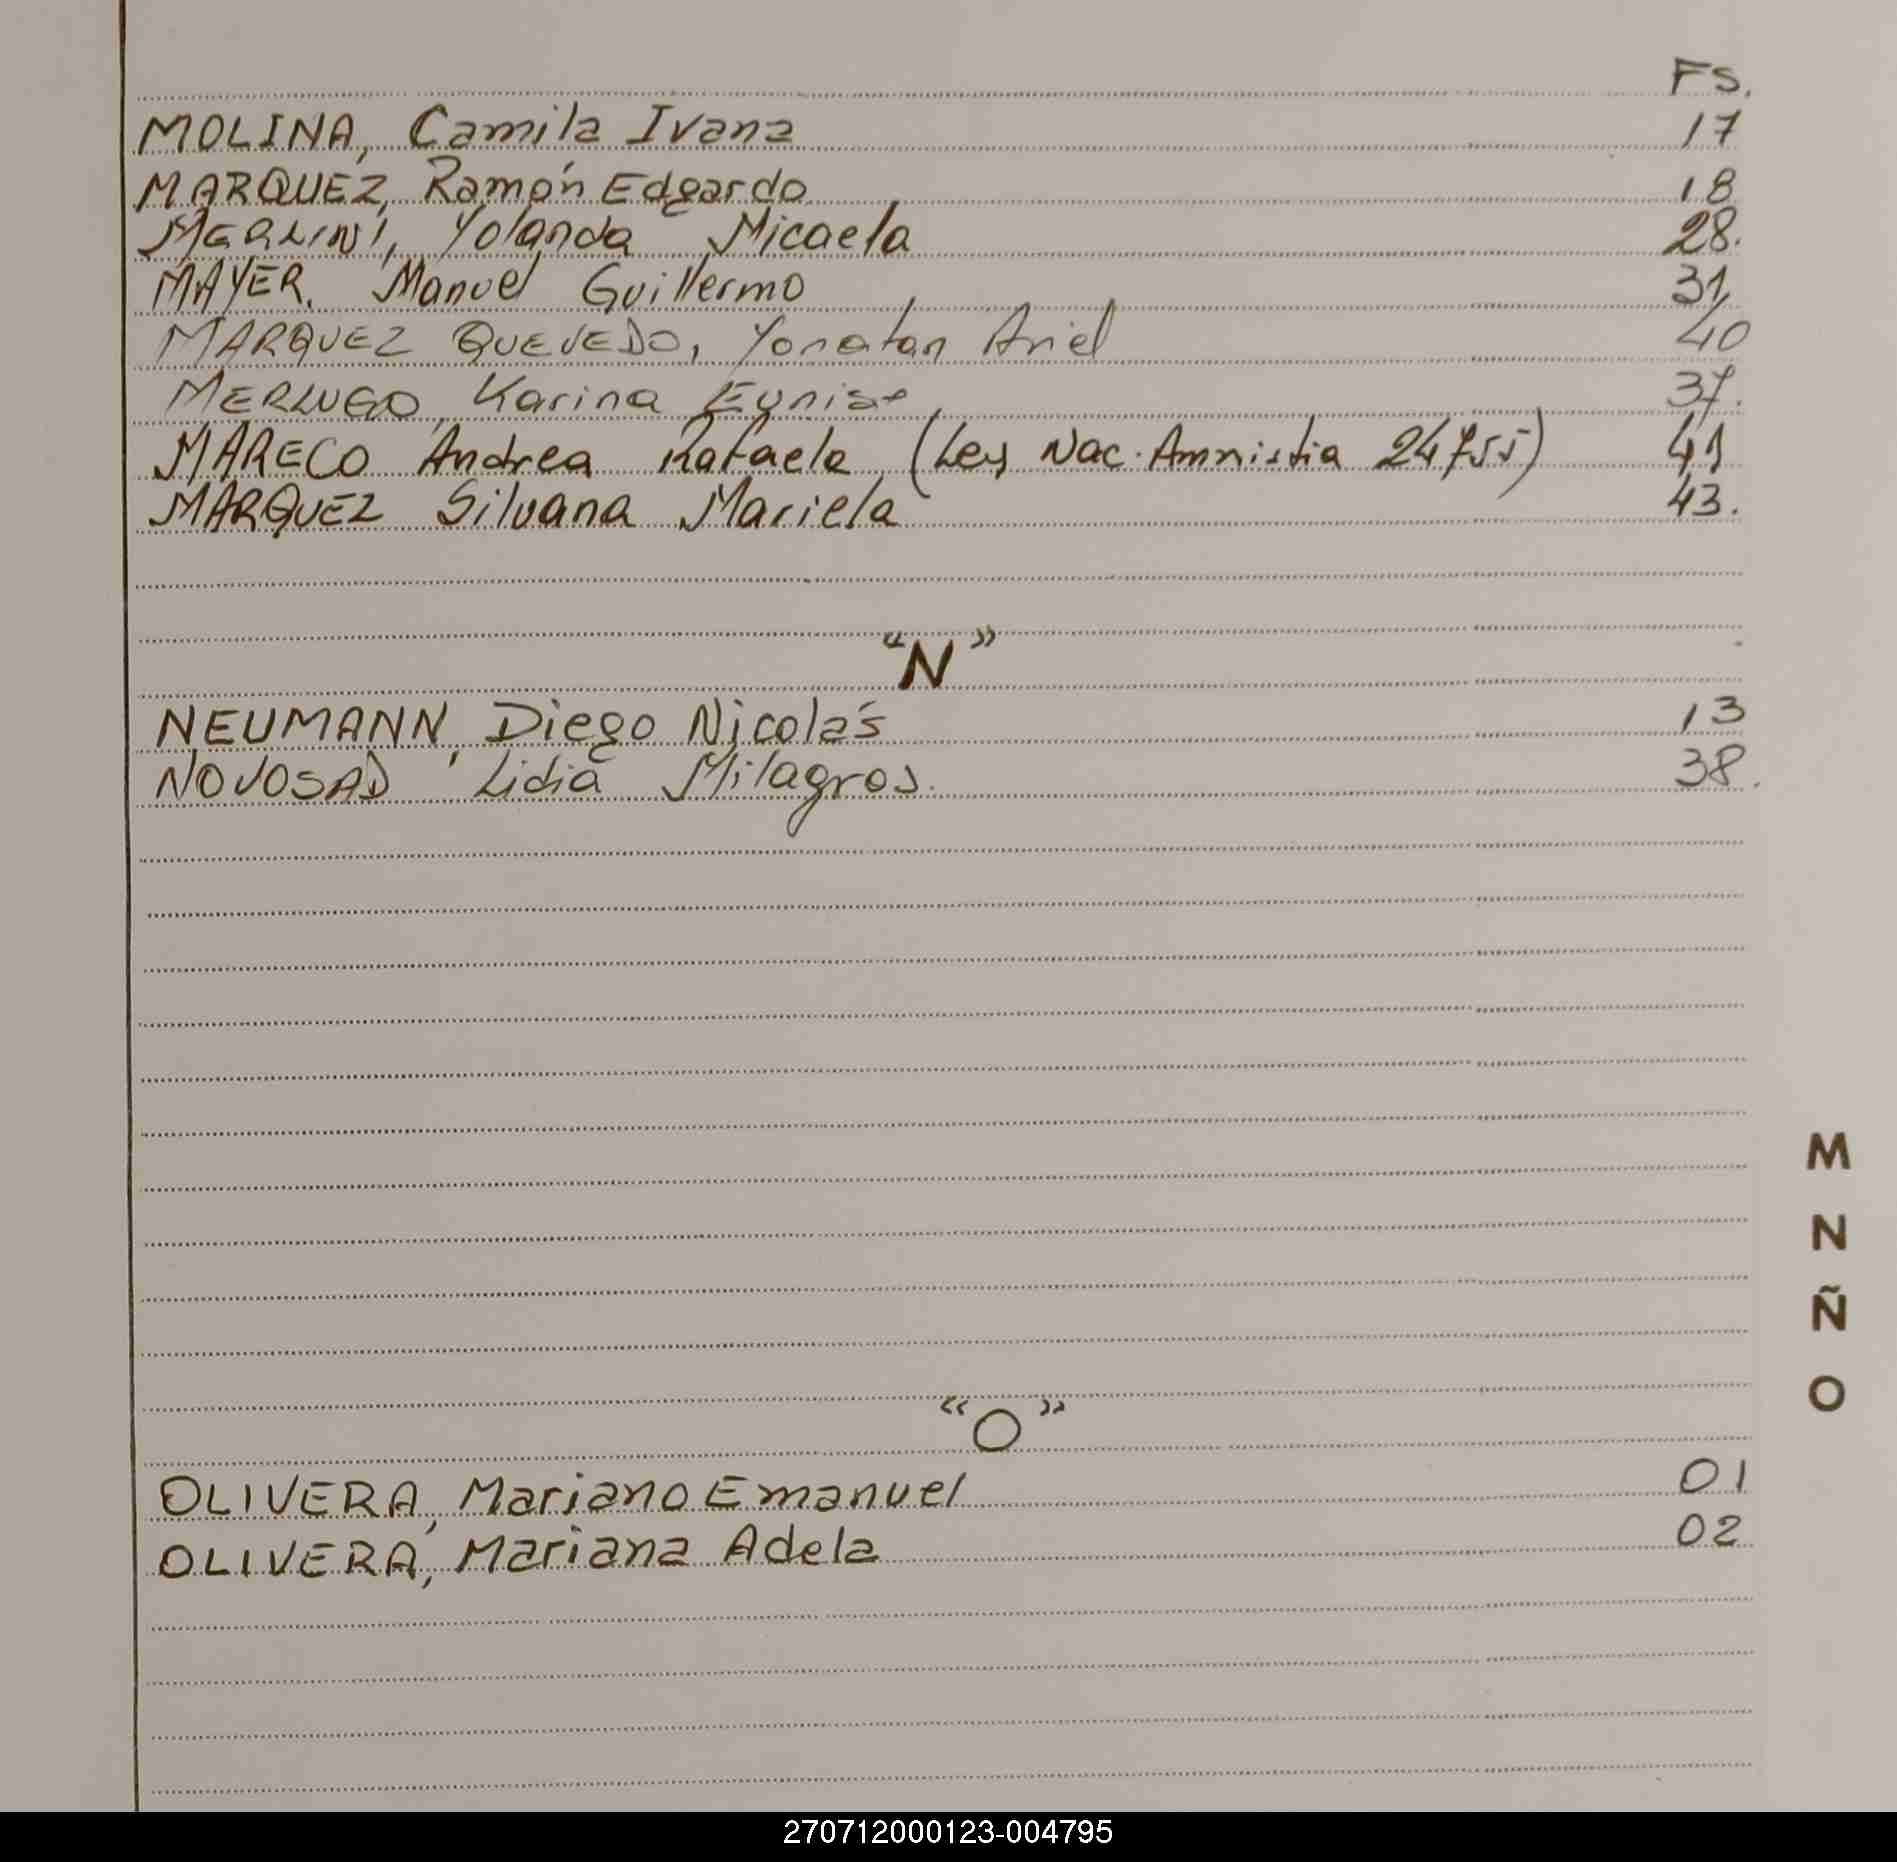 FS.
MOLINA, Camila Ivana 17
MARQUEZ, Ramón Edgardo 18
MERLINI, Yolanda Micaela 28.
MAYER, Manuel Guillermo 31
MARQUEZ QUEVEDO, Yonatan Ariel 40
MERLUGO, Karina Eunise 37.
MARECO Andrea Rafaela (Ley Nac. Amnistia 24755) 41
MARQUEZ Silvana Mariela 43.
"N"
NEUMANN, Diego Nicolás 13
NOVOSAD Lidia Milagros. 38.
M
N
Ñ
O
"O"
OLIVERA, Mariano Emanuel 01
OLIVERA, Mariana Adela 02
270712000123-004795